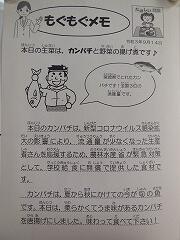 もぐもぐメモ
令和3年9月14日
本日の主菜は、カンパチと野菜の揚げ煮です♪
愛媛県でとれたカン
パチです!全国3位の
漁獲量です。
本日のカンパチは、新型コロナウイルス感染拡
大の影響により、流通量が少なくなった生産
者さんを応援するため、農林水産省が緊急対策
として、学校給食に無償で提供した食材で
す。
カンパチは、夏から秋にかけての今が旬の魚
です。本日は、柔らかくてうま味があるカンパチ
を唐揚げにしました。味わって食べて下さい!